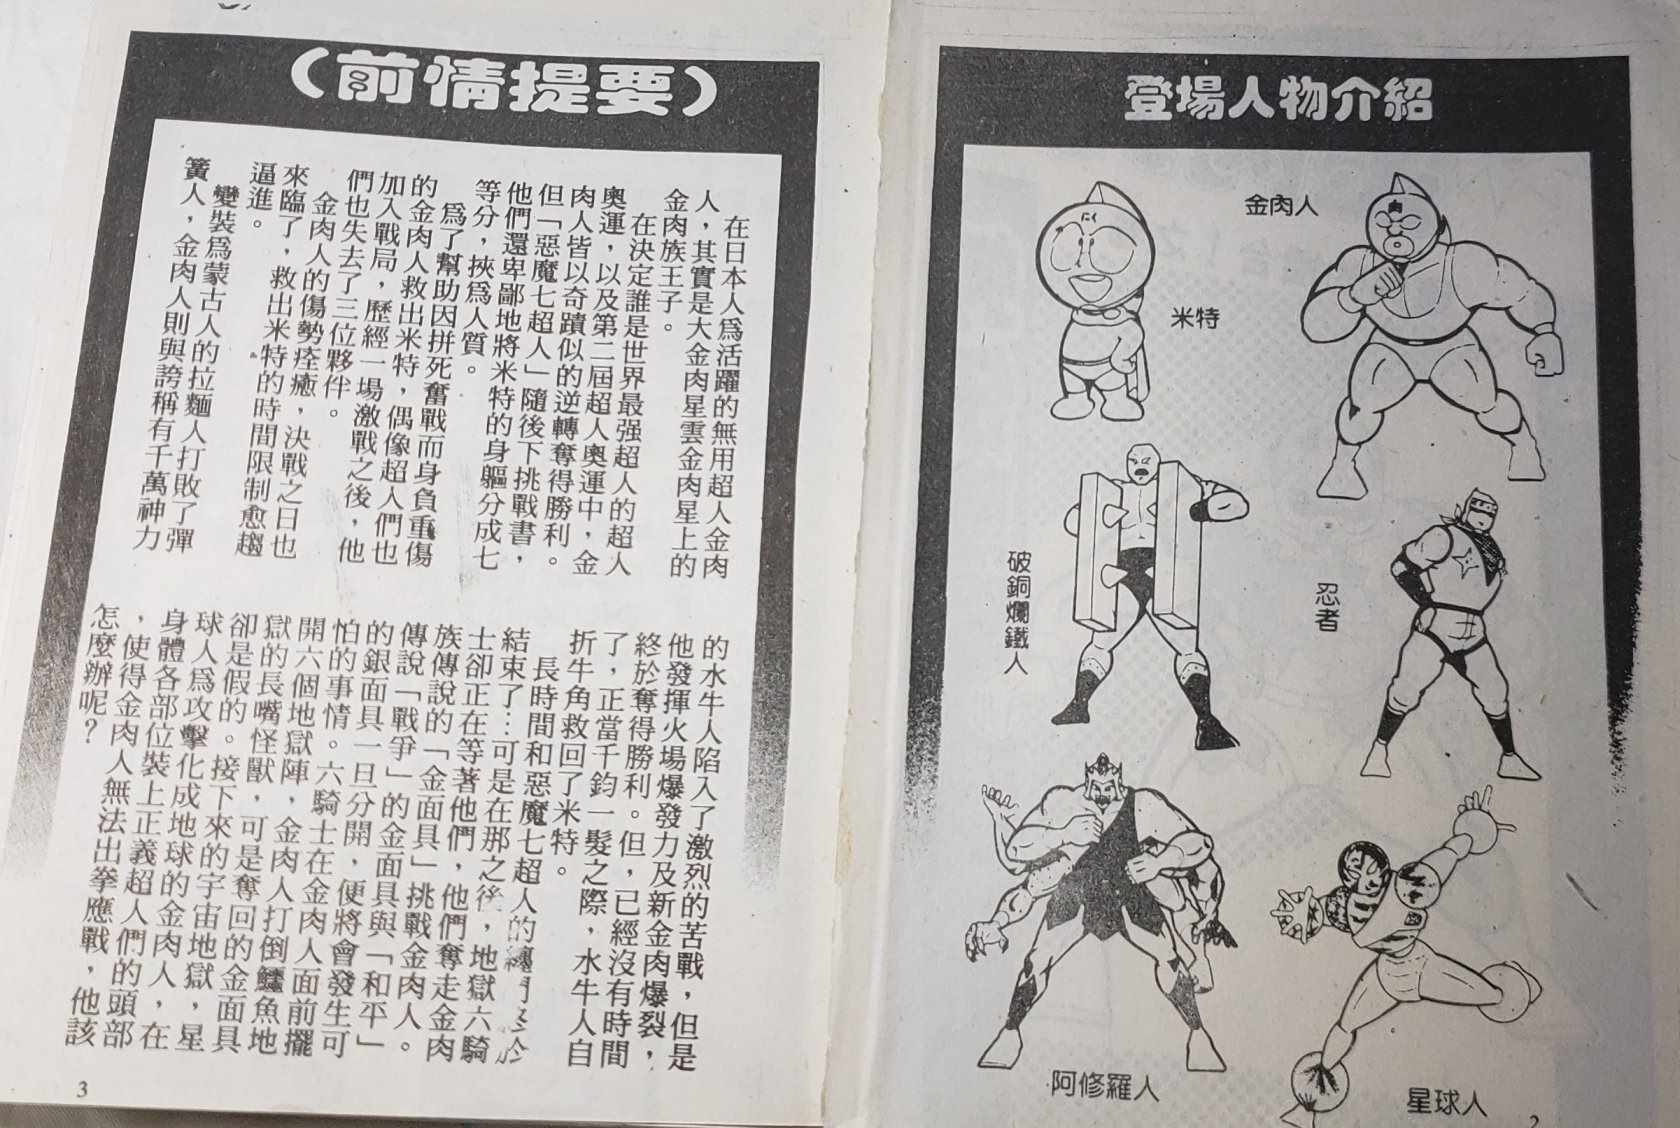 登場人物介紹
金肉人
米特
忍者
破銅爛鐵人
星球人
阿修羅人
2
（前情提要）
在日本人爲活躍的無用超人金肉
人，其實是大金肉星雲金肉星上的
金肉族王子。
在決定誰是世界最强超人的超人
奧運，以及第二屆超人奧運中，金
肉人皆以奇蹟似的逆轉奪得勝利。
但「惡魔七超人」隨後下挑戰書，
他們還卑鄙地將米特的身軀分成七
等分，挾爲人質。
爲了幫助因拼死奮戰而身負重傷
的金肉人救出米特，偶像超人們也
加入戰局，歷經一場激戰之後，他
們也失去了三位夥伴。
金肉人的傷勢痊癒，決戰之日也
來臨了，救出米特的時間限制愈趨
逼進。
變裝爲蒙古人的拉麵人打敗了彈
簧人，金肉人則與誇稱有千萬神力
的水牛人陷入了激烈的苦戰，但是
他發揮火場爆發力及新金肉爆裂，
終於奪得勝利。但，已經沒有時間
了，正當千鈞一髮之際，水牛人自
折牛角救回了米特。
長時間和惡魔七超人的纏鬥終於
結束了…可是在那之後，地獄六騎
士卻正在等著他們，他們奪走金肉
族傳說的「金面具」挑戰金肉人。
傳說「戰爭」的金面具與「和平」
的銀面具一旦分開，便將會發生可
怕的事情。六騎士在金肉人面前擺
開六個地獄陣，金肉人打倒鱷魚地
獄的長嘴怪獸，可是奪回的金面具
卻是假的。接下來的宇宙地獄，星
球人爲攻擊化成地球的金肉人，在
身體各部位裝上正義超人們的頭部
，使得金肉人無法出拳應戰，他該
怎麼辦呢？
3